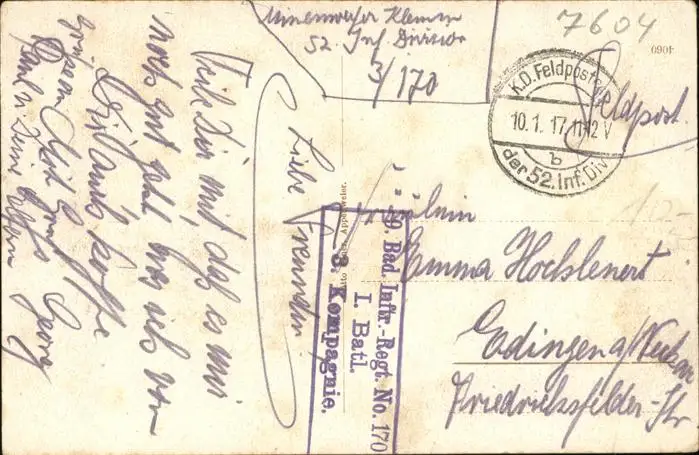 Minenwerfer Klemm
52. Inf. Division
3/170
7604
0901
Feldpost.
K.D. Feldpost
10.1.17. 11-12 V
b
der 52. Inf. Div
Fräulein
Emma
Edingen a/Neckar
Friedrichsfelder-Str
9. Bad. Inftr.-Regt. No. 170
I. Batl.
3. Kompagnie.
Appenweier.
Liebe Freundin
Teile Dir mit, daß es mir
noch gut geht, was ich von
Dir auch hoffe
Georg